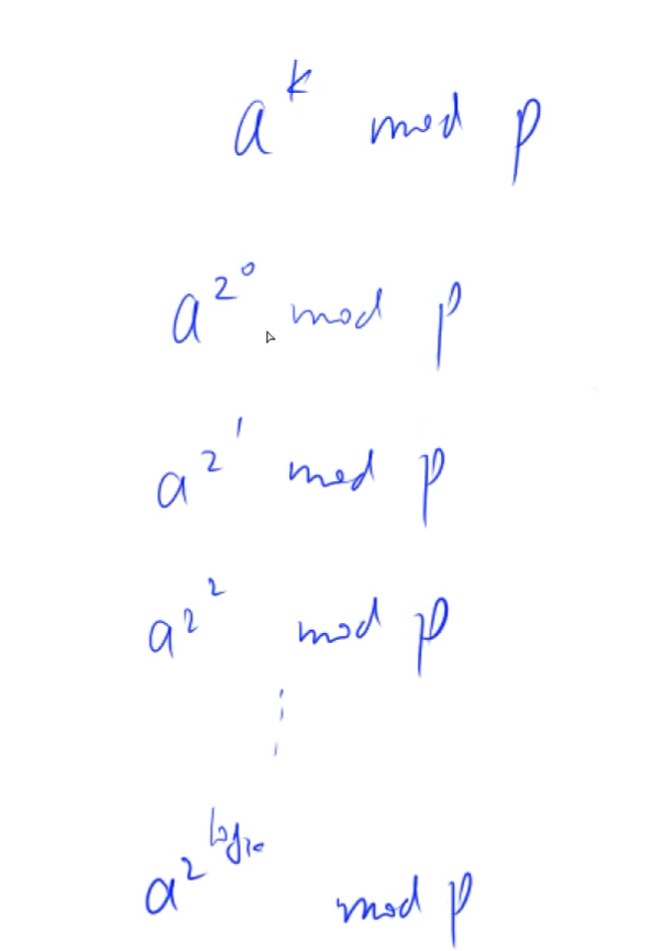 a^k mod p
a^{2^0} mod p
a^{2^1} mod p
a^{2^2} mod p
a^{2^{log k}} mod p